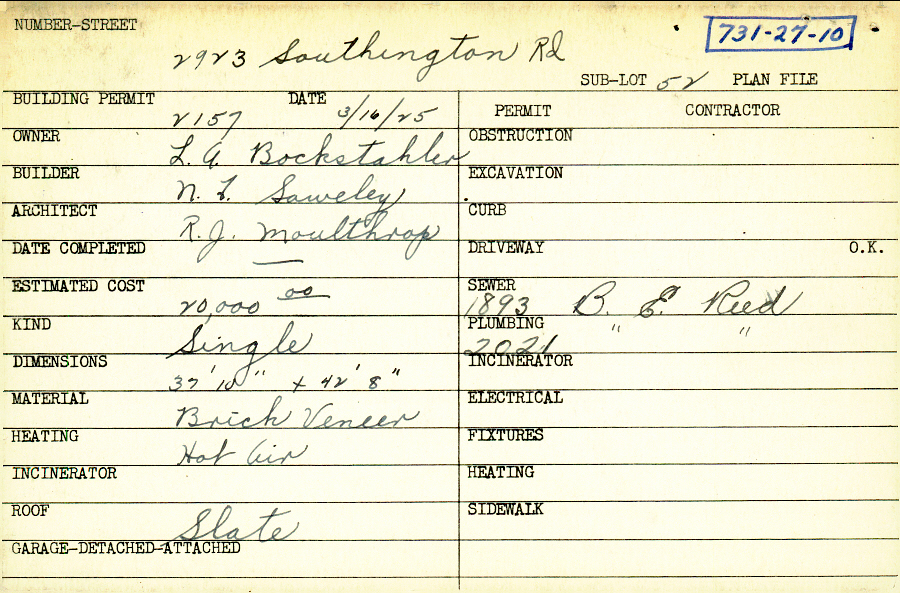 NUMBER-STREET
731-27-10
2923 Southington Rd
SUB-LOT 52 PLAN FILE
BUILDING PERMIT 2157 DATE 3/16/25
PERMIT CONTRACTOR
OWNER L. A. Bockstahler
OBSTRUCTION
BUILDER N. L. Saweley
EXCAVATION
ARCHITECT R. J. Moulthrop
CURB
DATE COMPLETED —
DRIVEWAY O.K.
ESTIMATED COST 20,000 00
SEWER 1893 B. E. Reed
KIND Single
PLUMBING 2021 " "
DIMENSIONS 37' 10" x 42' 8"
INCINERATOR
MATERIAL Brick Veneer
ELECTRICAL
HEATING Hot Air
FIXTURES
INCINERATOR
HEATING
ROOF Slate
SIDEWALK
GARAGE-DETACHED-ATTACHED